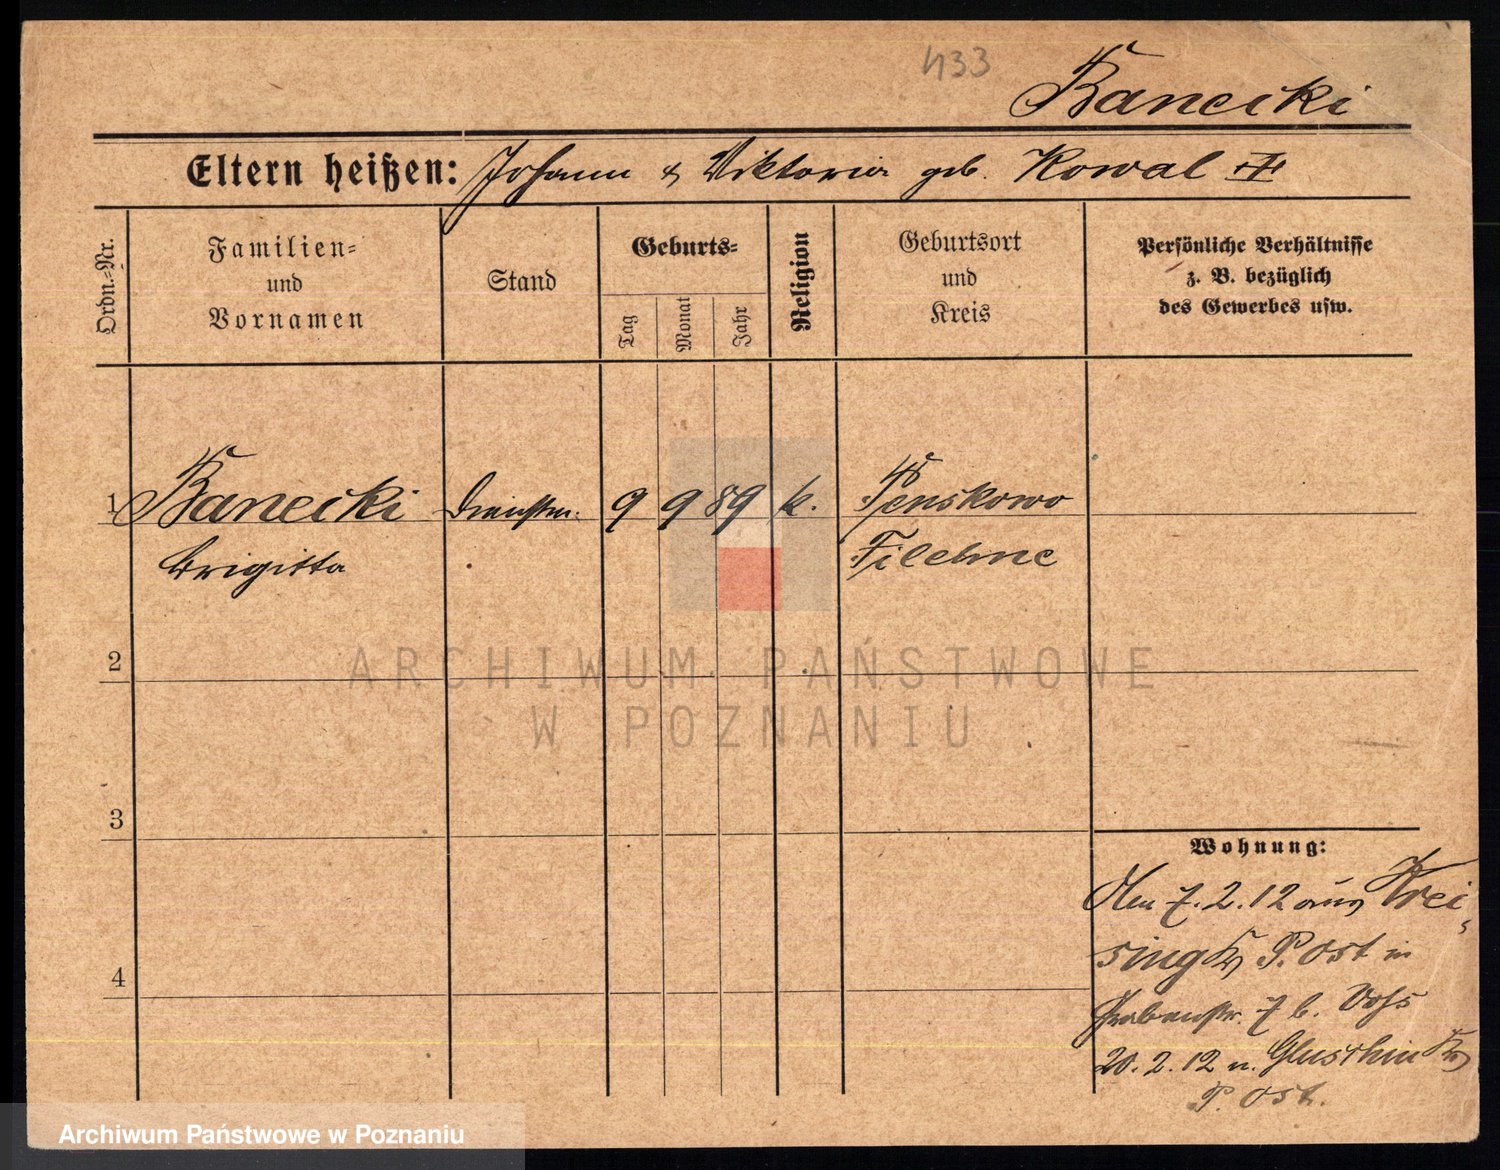 433
Banecki
Eltern heißen: Johann & Viktoria geb. Kowal ††
Ordn.=Nr.
Familien=
und
Vornamen
Stand
Geburts=
Tag
Monat
Jahr
Religion
Geburtsort
und
Kreis
Persönliche Verhältnisse
z. B. bezüglich
des Gewerbes usw.
1 Banecki Dienstm. 9 9 89 k. Penskowo
Brigitta Filehne
2
ARCHIWUM PAŃSTWOWE
W POZNANIU
3
Wohnung:
Am 7.2.12 aus Krei-
sing Kr P. Ost in
Grabenstr. 7 b. Voss
4
20.2.12 n. Gluschin Kr
P. Ost.
Archiwum Państwowe w Poznaniu